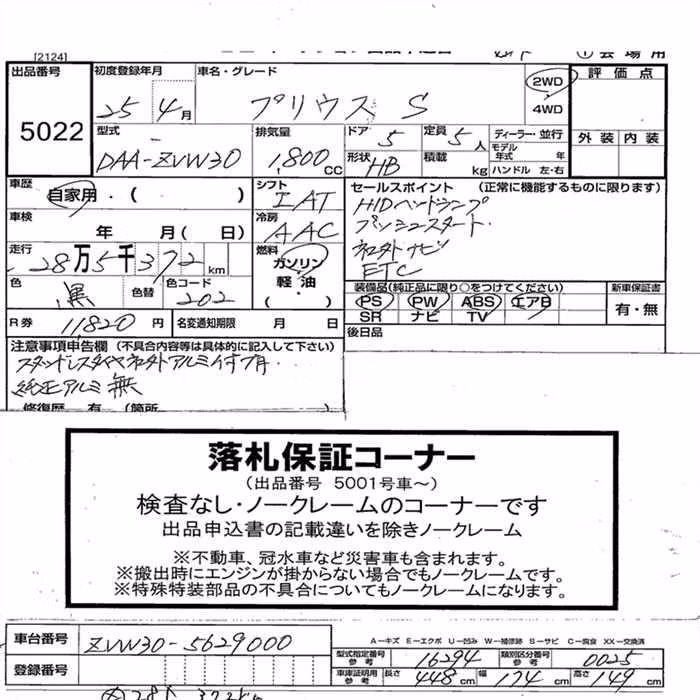 [2124]
① 会場用
出品番号 5022
初度登録年月 25 4月
車名・グレード プリウス S
2WD
4WD
評価点
外装 内装
型式 DAA-ZVW30
排気量 1,800 CC
ドア 5
定員 5人
形状 HB
積載 kg
ディーラー・並行
モデル年式 年
ハンドル 左・右
車歴 自家用・( )
シフト IAT
セールスポイント (正常に機能するものに限ります)
HIDヘッドランプ
プッシュスタート
社外ナビ
ETC
車検 年 月( 日)
冷房 AAC
走行 28万5千372km
燃料 ガソリン・軽油・( )
色 黒
色替
色コード 202
装備品(純正品に限り○をつけてください)
PS PW ABS エアB
SR ナビ TV
新車保証書 有・無
R券 11,820円
名変通知期限 月 日
後日品
注意事項申告欄 (不具合内容等は具体的に記入して下さい)
スタッドレスタイヤ社外アルミ付です
純正アルミ無
修復歴 有 (箇所
落札保証コーナー
(出品番号 5001号車~)
検査なし・ノークレームのコーナーです
出品申込書の記載違いを除きノークレーム
※不動車、冠水車など災害車も含まれます。
※搬出時にエンジンが掛からない場合でもノークレームです。
※特殊特装部品の不具合についてもノークレームになります。
車台番号 ZVW30-5629000
A-キズ E-エクボ U-凹み W-補修跡 S-サビ C-腐食 XX-交換済
型式指定番号 参考 16294
類別区分番号 参考 0025
登録番号
車庫証明用 参考 長さ 448cm 幅 174cm 高さ 149cm